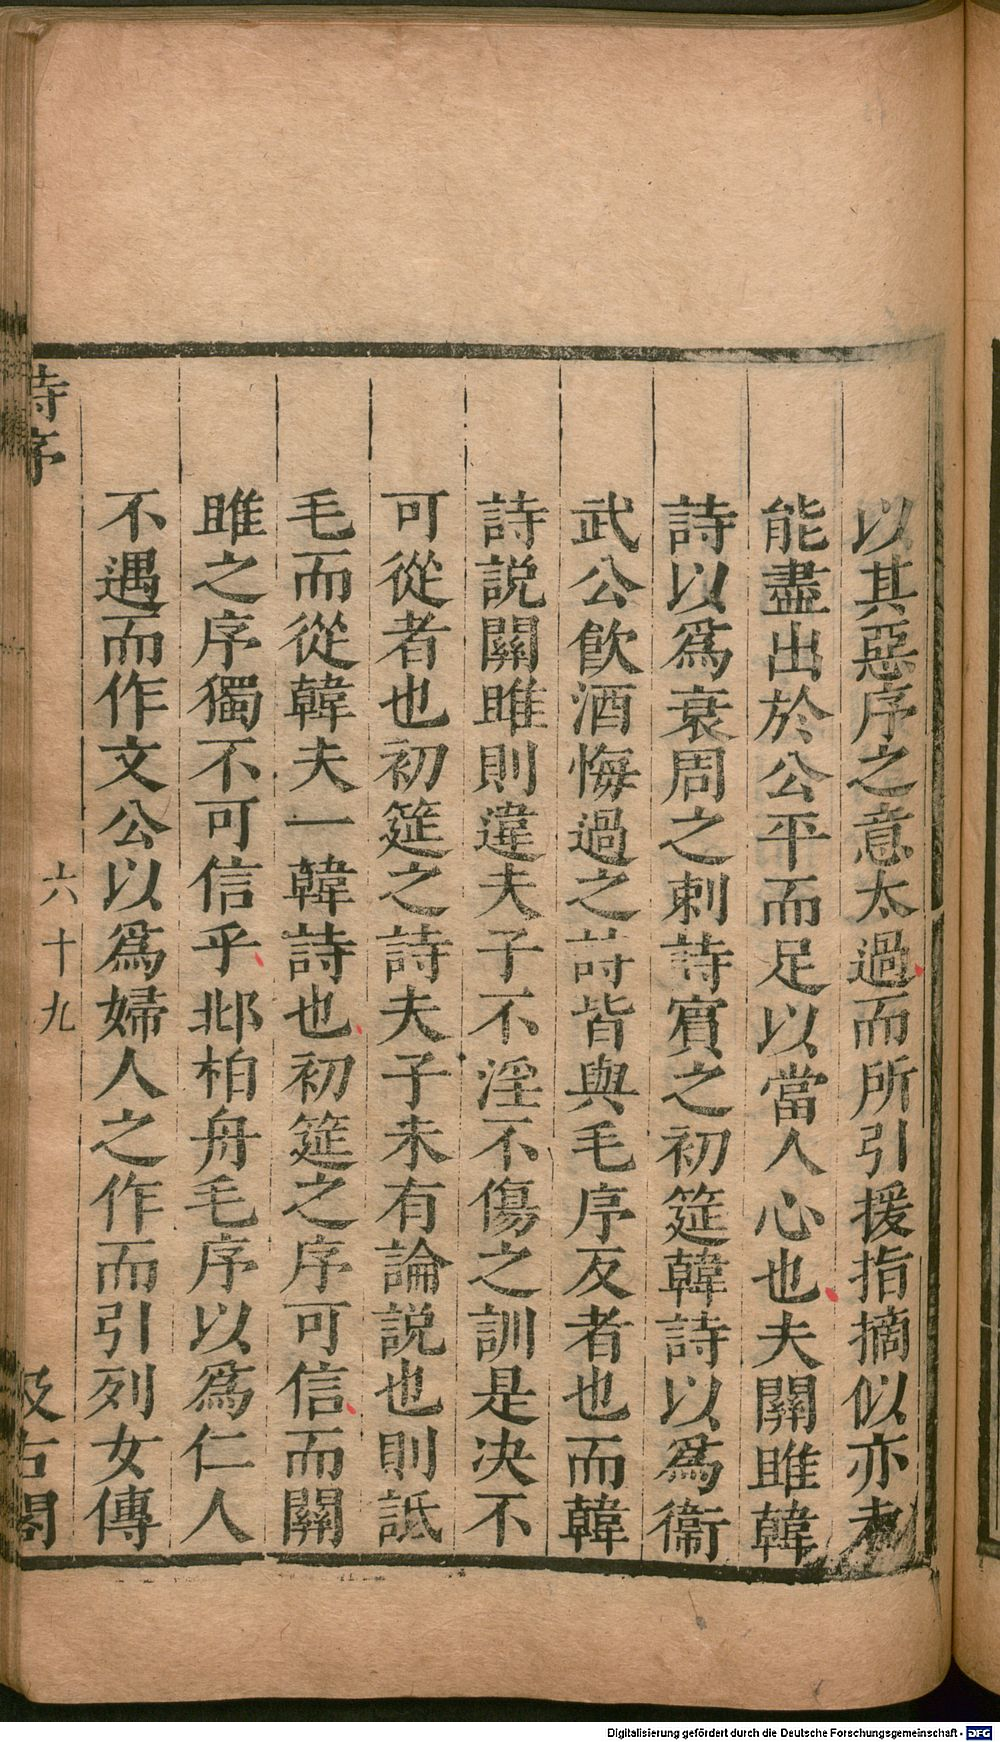 以其惡序之意太過而所引援指摘似亦未
能盡出於公平而足以當人心也夫關雎韓
詩以爲衰周之刺詩賓之初筵韓詩以爲衞
武公飲酒悔過之詩皆與毛序反者也而韓
詩説關雎則違夫子不淫不傷之訓是决不
可從者也初筵之詩夫子未有論説也則詆
毛而從韓夫一韓詩也初筵之序可信而關
雎之序獨不可信乎邶柏舟毛序以爲仁人
不遇而作文公以爲婦人之作而引列女傳
詩序
六十九
汲古閣
Digitalisierung gefördert durch die Deutsche Forschungsgemeinschaft - DFG